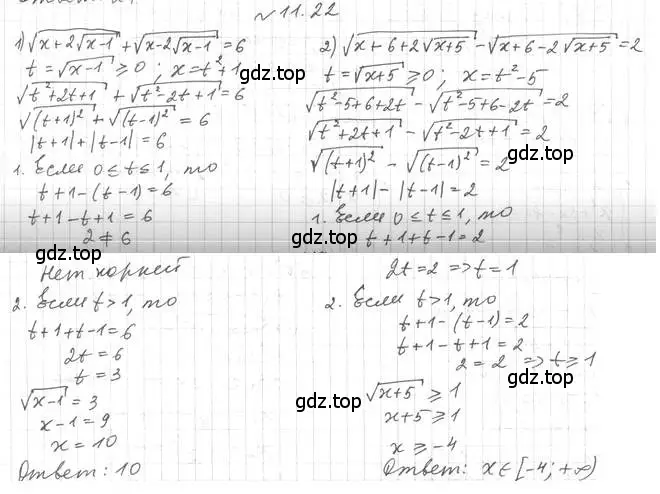 № 11.22
1) √(x+2√(x-1)) + √(x-2√(x-1)) = 6
t = √(x-1) ⩾ 0 ; x = t²+1
√(t²+2t+1) + √(t²-2t+1) = 6
√((t+1)²) + √((t-1)²) = 6
|t+1|+|t-1| = 6
1. Если 0 ≤ t ≤ 1, то
t+1-(t-1) = 6
t+1-t+1 = 6
2 ≠ 6
gdz.top
Нет корней
2. Если t > 1, то
t+1+t-1 = 6
2t = 6
t = 3
√(x-1) = 3
x-1 = 9
x = 10
Ответ: 10
2) √(x+6+2√(x+5)) - √(x+6-2√(x+5)) = 2
t = √(x+5) ⩾ 0; x = t²-5
√(t²-5+6+2t) - √(t²-5+6-2t) = 2
√(t²+2t+1) - √(t²-2t+1) = 2
√((t+1)²) - √((t-1)²) = 2
|t+1| - |t-1| = 2
1. Если 0 ≤ t ≤ 1, то
t+1+t-1 = 2
gdz.top
2t = 2 => t = 1
2. Если t > 1, то
t+1-(t-1) = 2
t+1-t+1 = 2
2 = 2 => t ⩾ 1
√(x+5) ⩾ 1
x+5 ⩾ 1
x ⩾ -4
Ответ: x∈[-4; +∞)
gdz.top
gdz.top
gdz.top
gdz.top
gdz.top
gdz.top